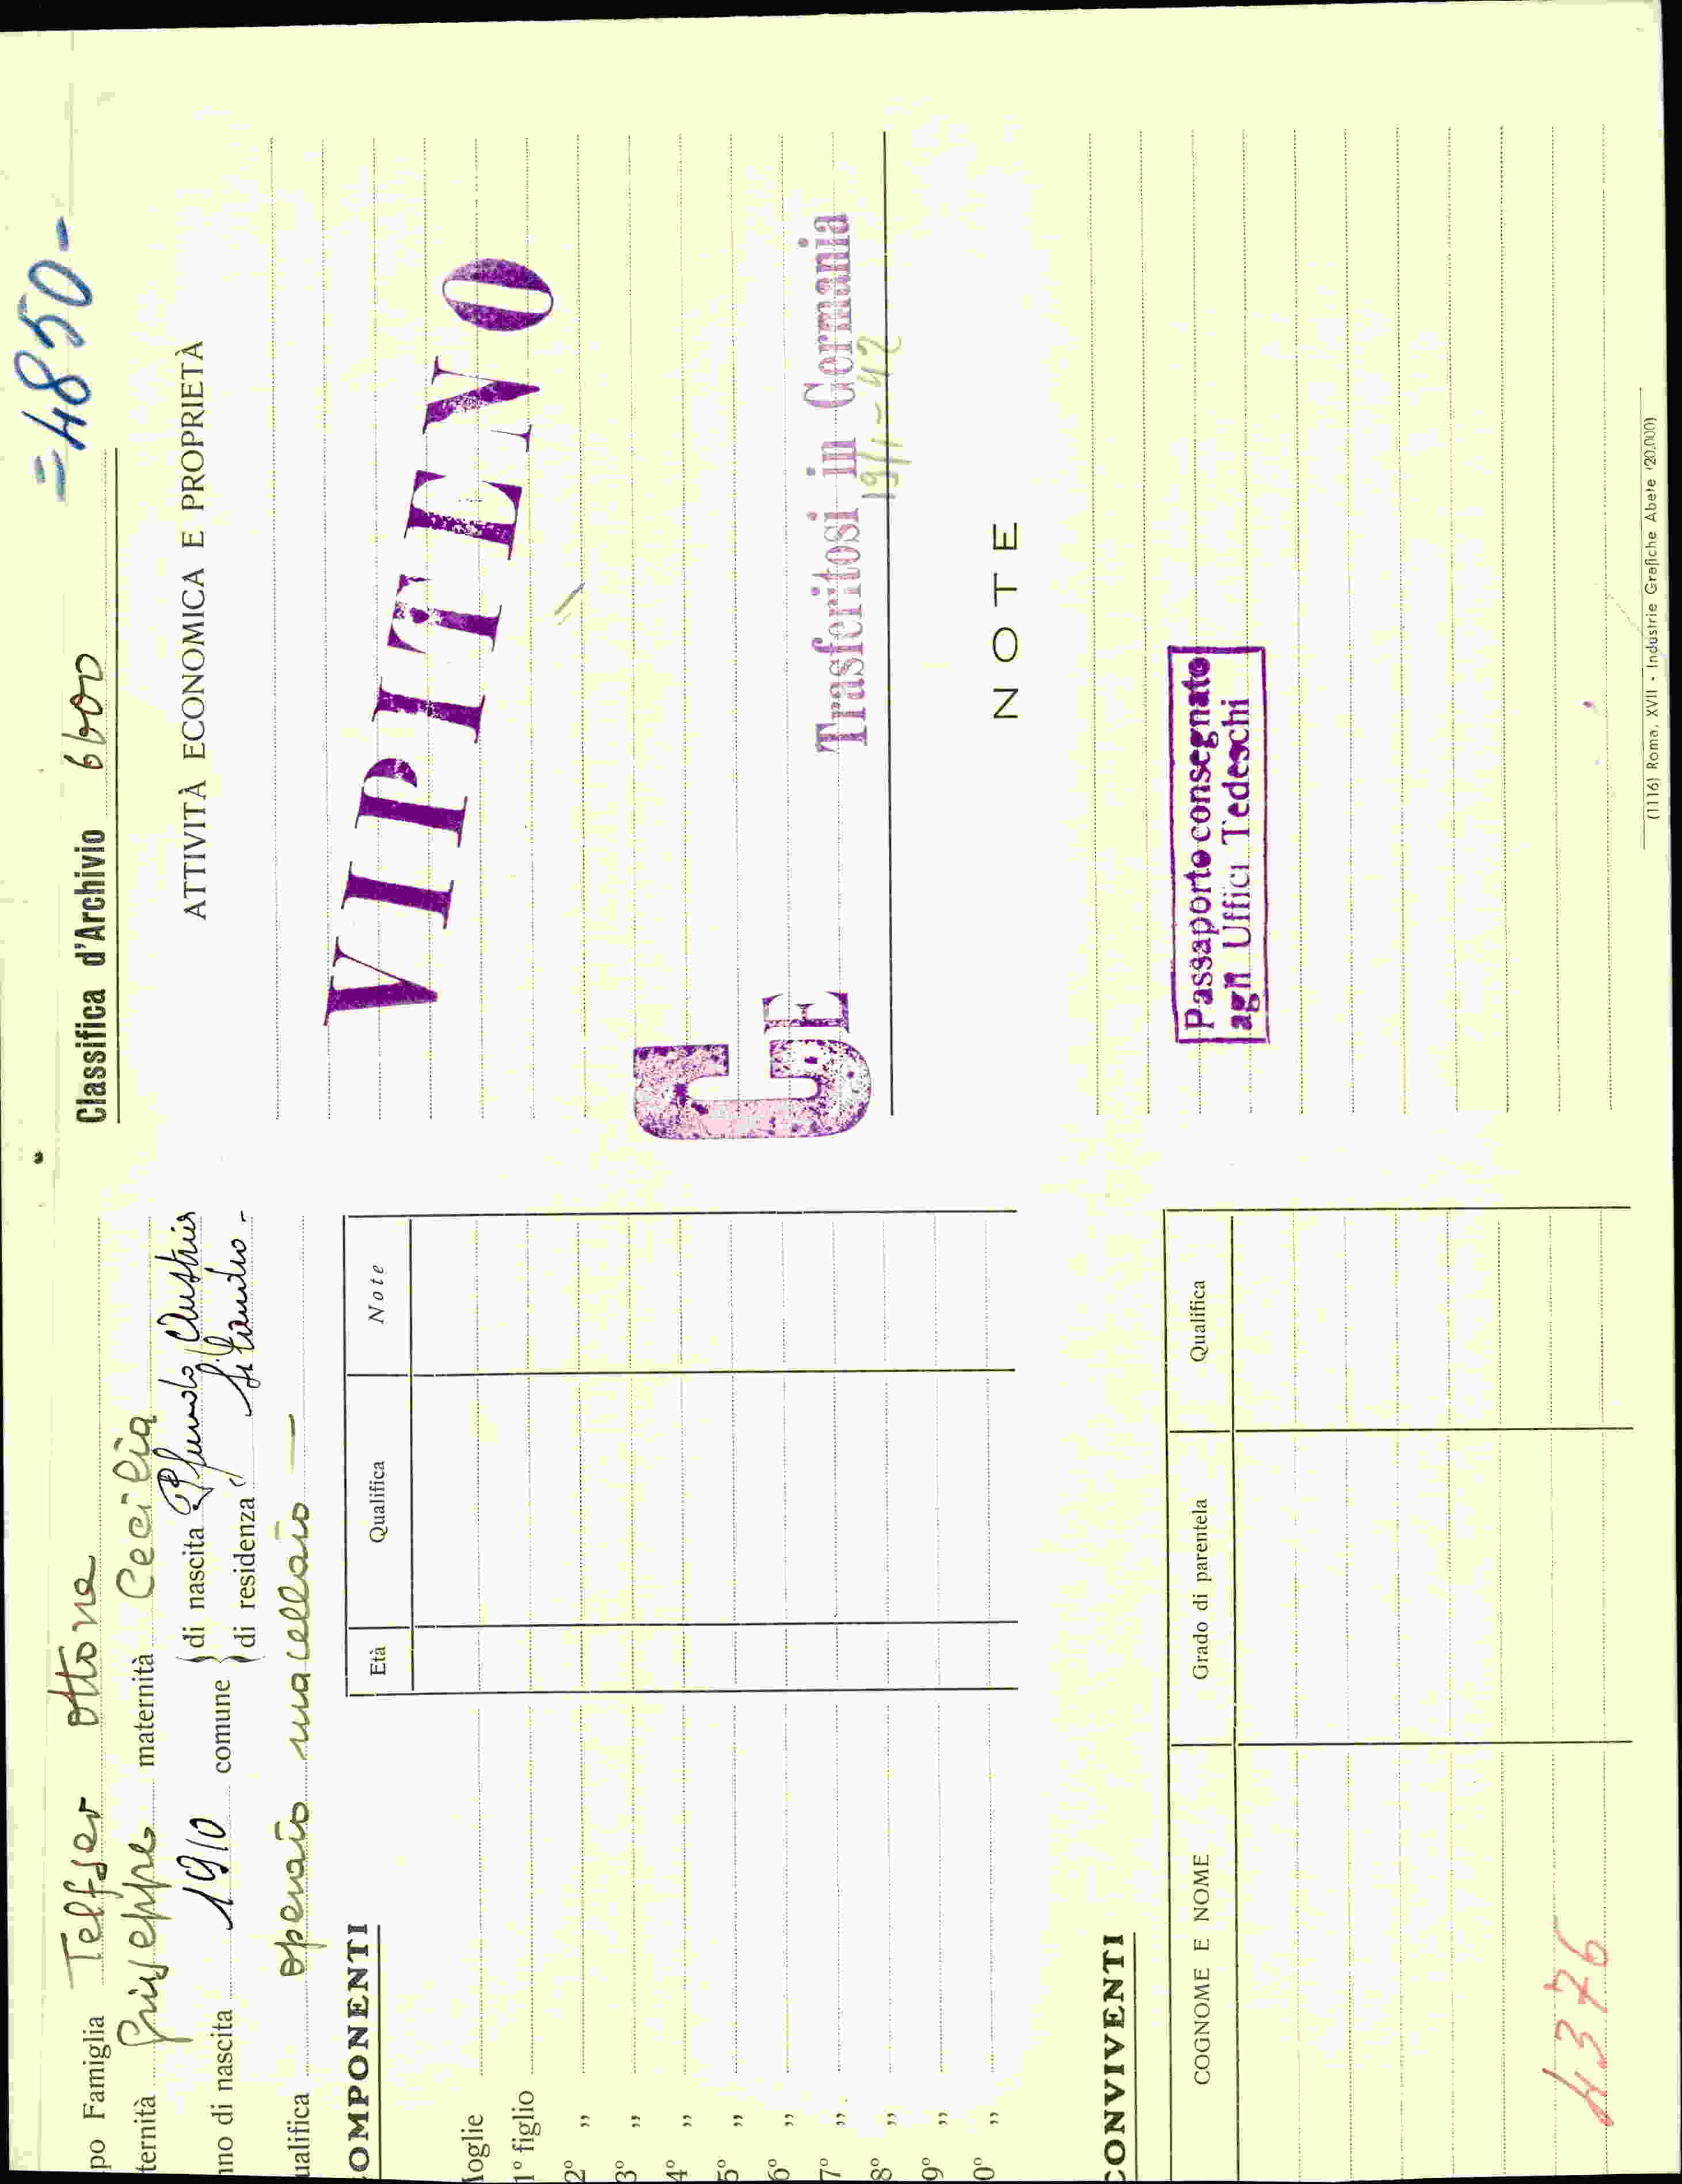 =4850-
Classifica d'Archivio 6600
po Famiglia Telfser Ottone
ternità Giuseppe maternità Cecilia
nno di nascita 1910 comune
di nascita Pfunds Austria
di residenza Silandro -
ualifica operaio macellaio —
OMPONENTI
Età Qualifica Note
loglie
1° figlio
2° ”
3° ”
4° ”
5° ”
6° ”
7° ” .
8° ”
9° ”
0° ”
CONVIVENTI
COGNOME E NOME Grado di parentela Qualifica
4376
ATTIVITÀ ECONOMICA E PROPRIETÀ
VIPITENO
G E
Trasferitosi in Germania
19/1-42
NOTE
Passaporto consegnato
agli Uffici Tedeschi
(1116) Roma, XVII - Industrie Grafiche Abete (20.000)